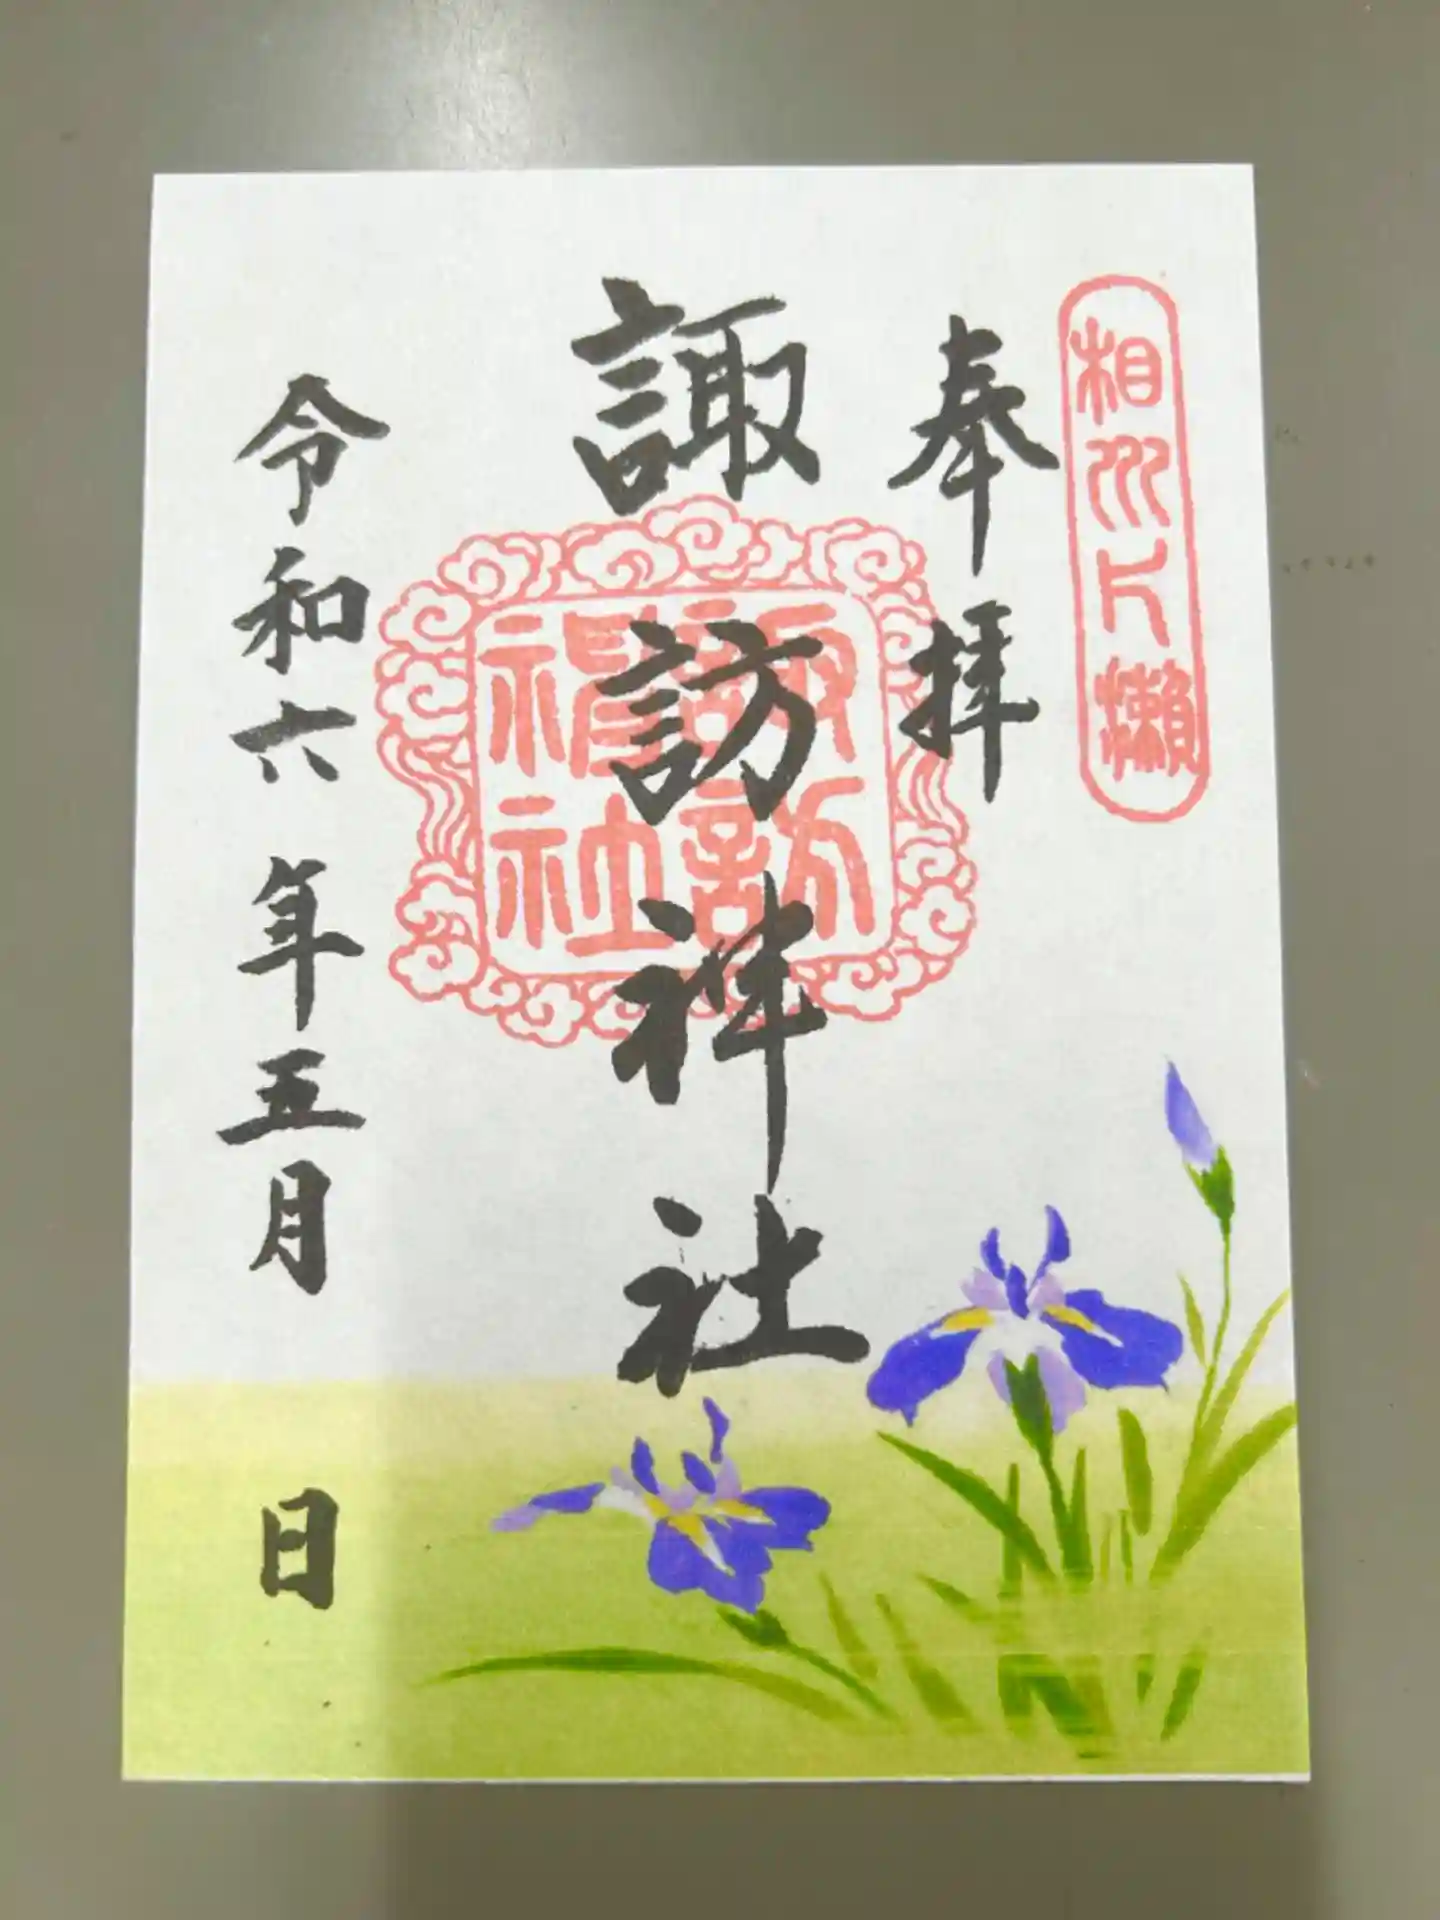 相州片瀬
奉拝
諏訪神社
諏訪
神社
令和六年五月 日